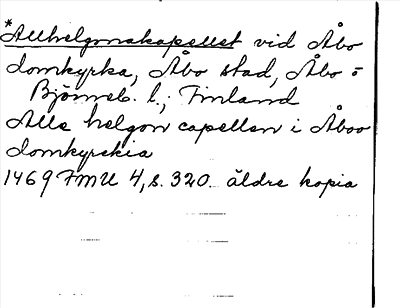 *Allhelgonakapellet vid Åbo
domkyrka, Åbo stad, Åbo o
Björneb. l., Finland
Alle helgon capellan i Åboo
domkyrkia
1469 FMU 4, s. 320. äldre kopia